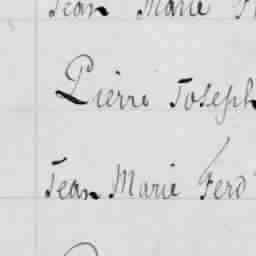 Jean Marie
Pierre Joseph
Jean Marie Ferd